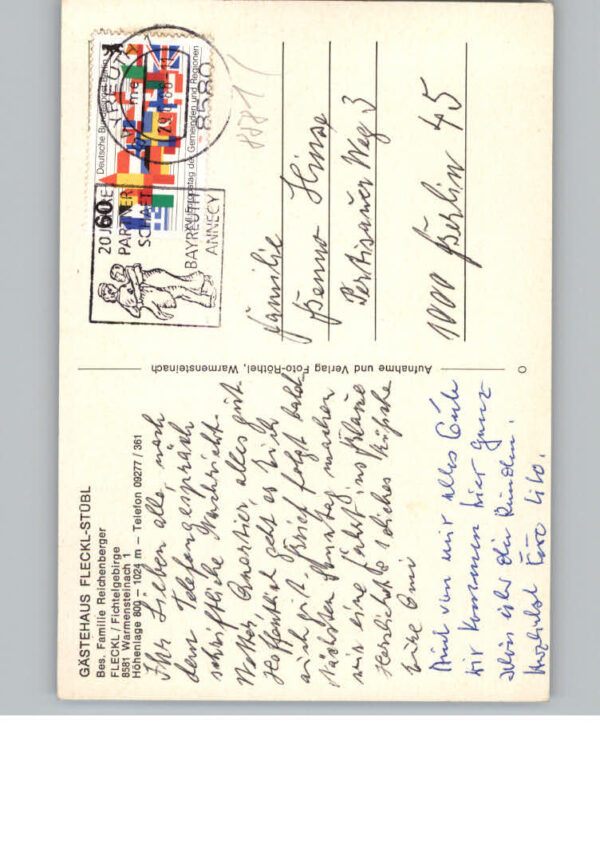 GÄSTEHAUS FLECKL-STÜBL
Bes. Familie Reichenberger
FLECKL / Fichtelgebirge
8581 Warmensteinach 1
Höhenlage 800 – 1024 m – Telefon 09277 / 361
Ihr Lieben alle, nach
dem Telefongespräch
schriftliche Nachricht.
Wetter, Quartier, alles gut.
Hoffentlich geht es Euch
auch gut. Brief folgt bald.
Nächsten Sonntag machen
wir eine Fahrt ins Blaue
Herzlichste
Eure Omi
Auch von mir alles Gute
wir kommen hier ganz
schön über die Runden.
Herzlichst Eure Lilo.
Aufnahme und Verlag Foto-Röthel, Warmensteinach
Deutsche Bundespost Berlin
60
XVII. Europatag der Gemeinden und Regionen
BAYREUTH 1
8580
20 JAHRE
PARTNER
SCHAFT
BAYREUTH
ANNECY
Familie
Benno Hinse
Pertisauer Weg 3
1000 Berlin 45